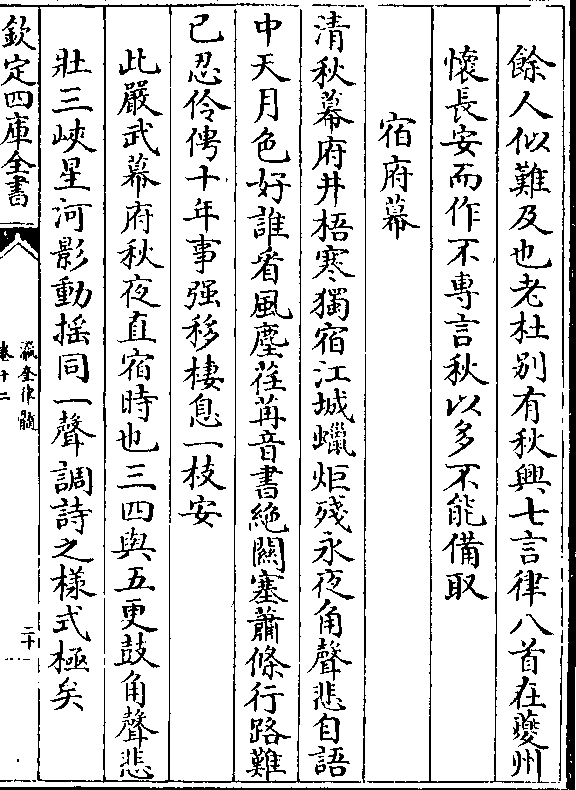 餘人似難及也老杜别有秋興七言律八首在夔州
懷長安而作不專言秋以多不能備取
宿府幕
清秋幕府井梧寒獨宿江城蠟炬殘永夜角聲悲自語
中天月色好誰看風塵荏苒音書絶關塞蕭條行路難
已忍伶俜十年事强移棲息一枝安
此嚴武幕府秋夜直宿時也三四與五更鼓角聲悲
壯三峽星河影動揺同一聲調詩之樣式極矣
欽定四庫全書
瀛奎律髓
卷十二
二十